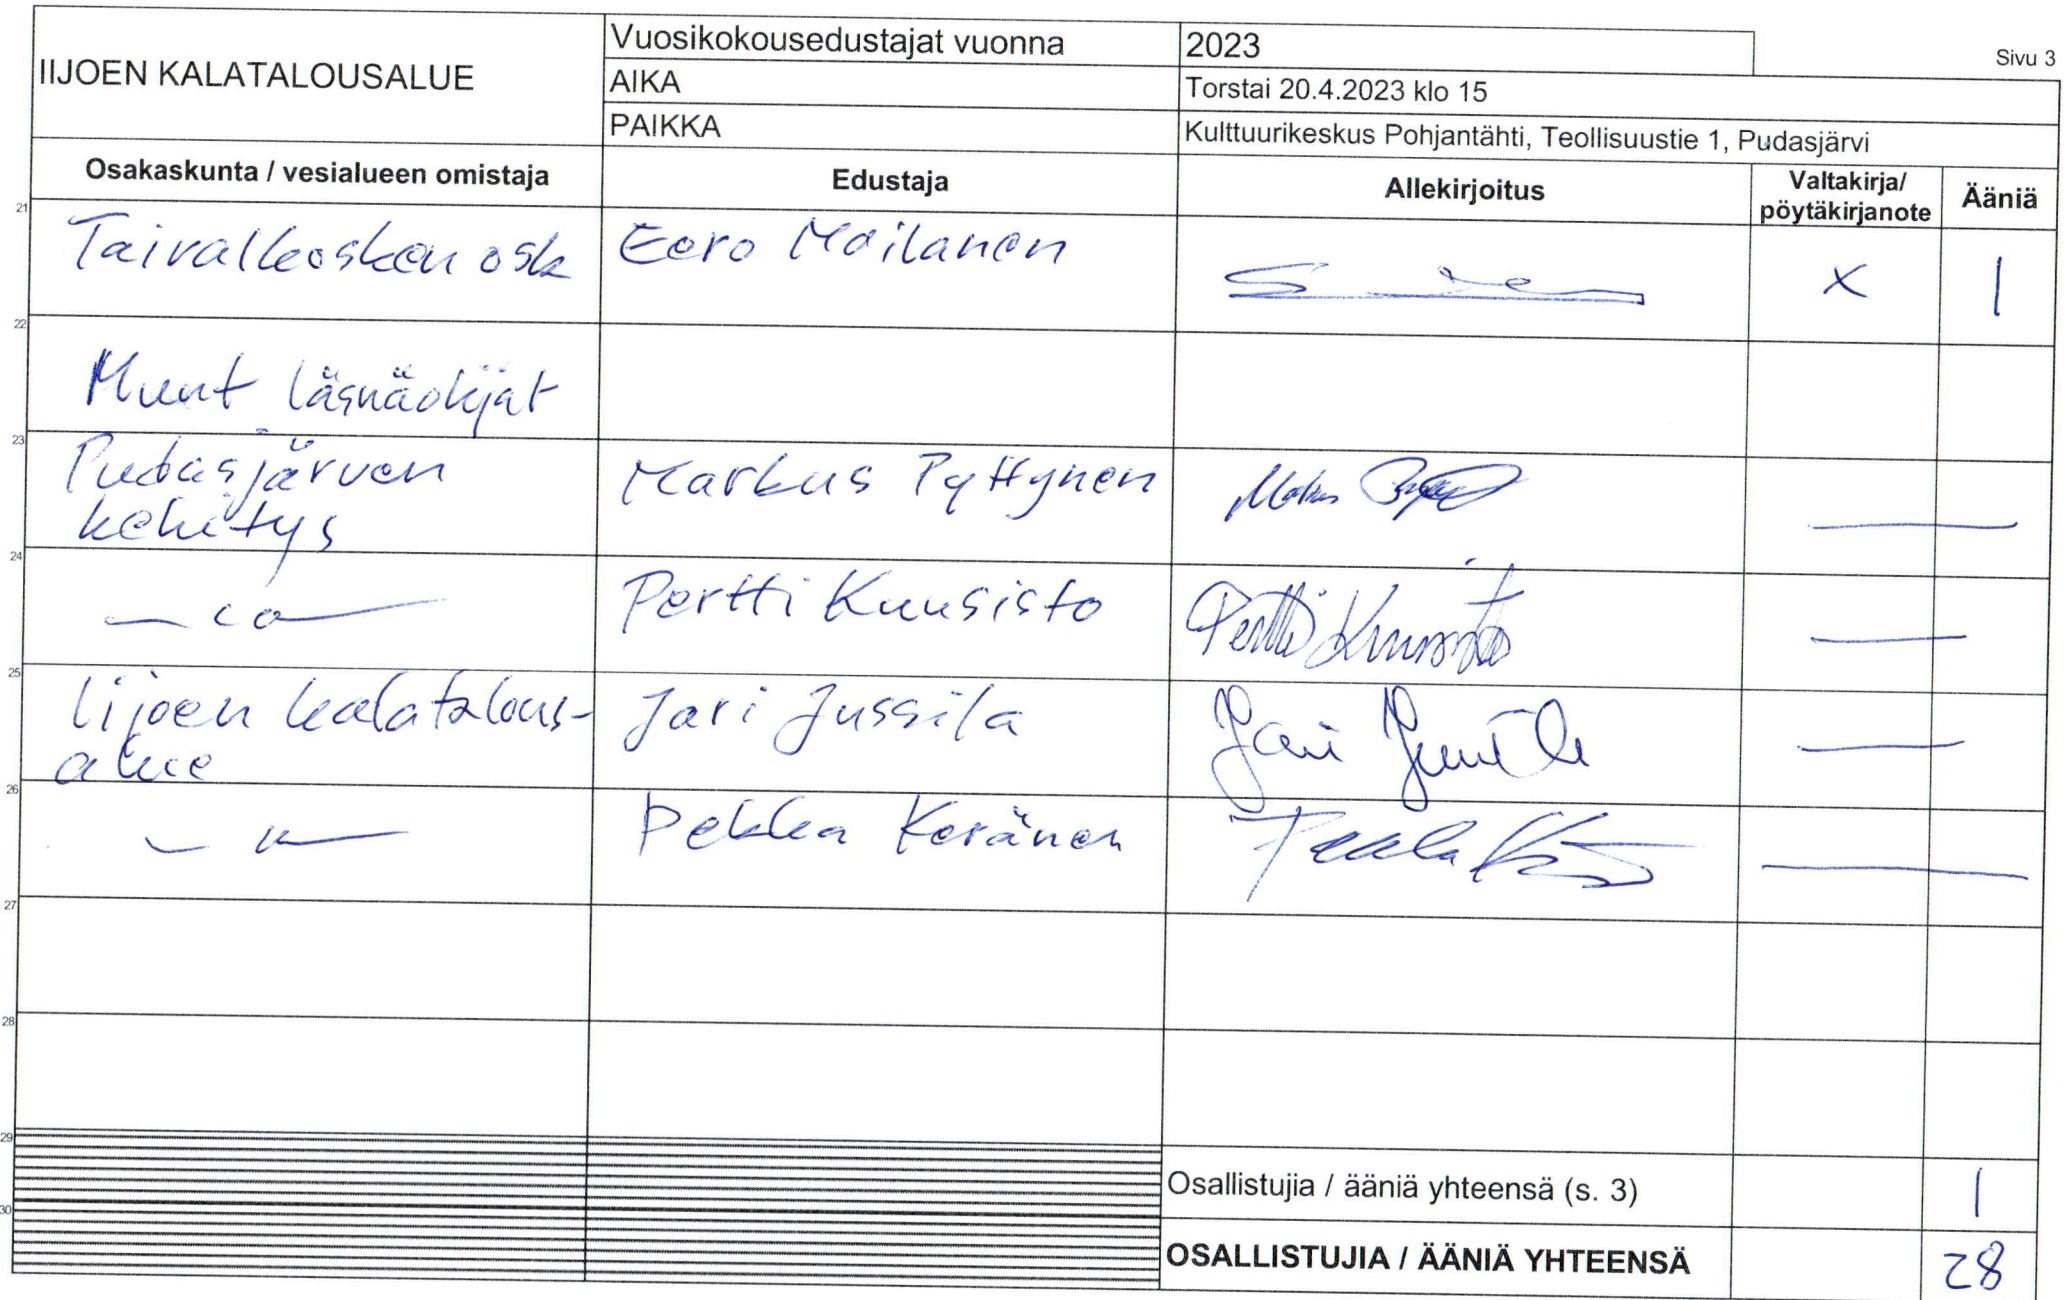 IIJOEN KALATALOUSALUE
Vuosikokousedustajat vuonna 2023
Sivu 3
AIKA Torstai 20.4.2023 klo 15
PAIKKA Kulttuurikeskus Pohjantähti, Teollisuustie 1, Pudasjärvi
Osakaskunta / vesialueen omistaja Edustaja Allekirjoitus Valtakirja/ pöytäkirjanote Ääniä
21 Taivalkosken osk Eero Moilanen x 1
22 Muut läsnäolijat
23 Pudasjärven Markus Pyttynen
kehitys
24 Pertti Kuusisto Pertti Kuusisto
25 Iijoen kalatalous- Jari Jussila Jari Jussila
alue
26 Pekka Keränen Pekka
27
28
29 Osallistujia / ääniä yhteensä (s. 3) 1
30 OSALLISTUJIA / ÄÄNIÄ YHTEENSÄ 28